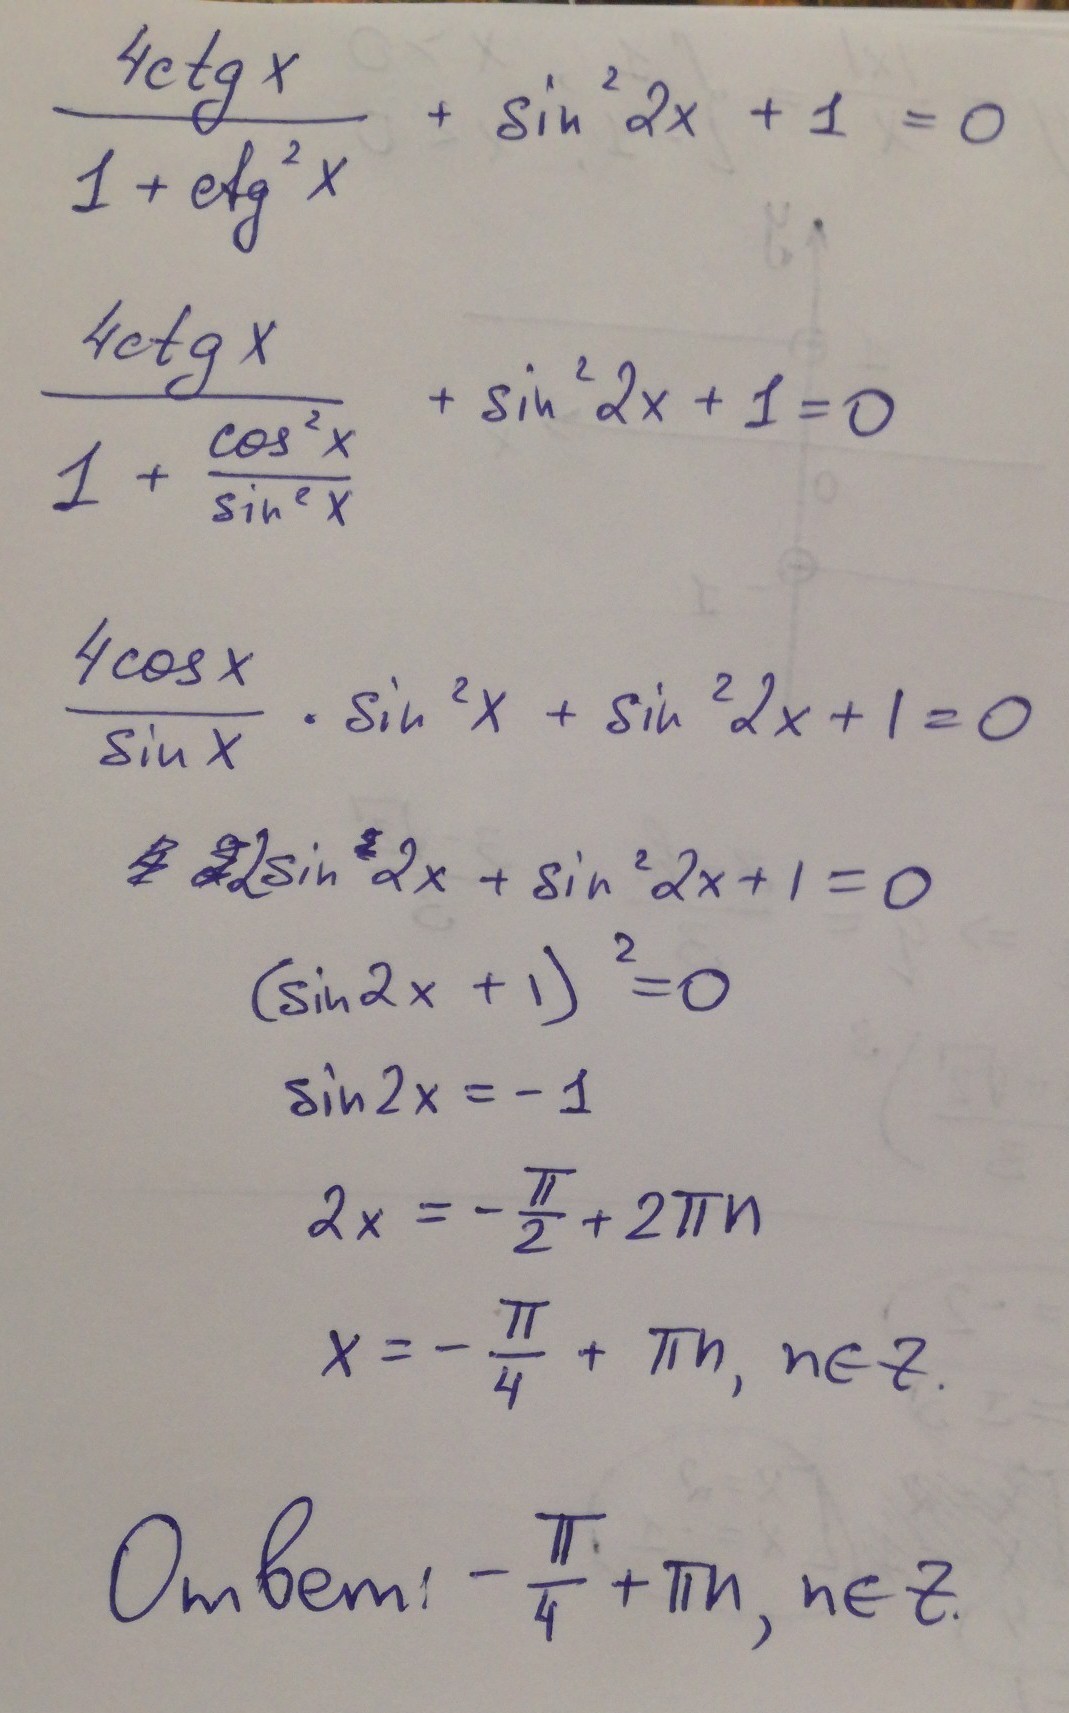 4ctg x / (1 + ctg² x) + sin² 2x + 1 = 0
4ctg x / (1 + cos² x / sin² x) + sin² 2x + 1 = 0
4cos x / sin x · sin² x + sin² 2x + 1 = 0
2sin 2x + sin² 2x + 1 = 0
(sin 2x + 1)² = 0
sin 2x = -1
2x = -π/2 + 2πn
x = -π/4 + πn, n ∈ Z.
Ответ: -π/4 + πn, n ∈ Z.